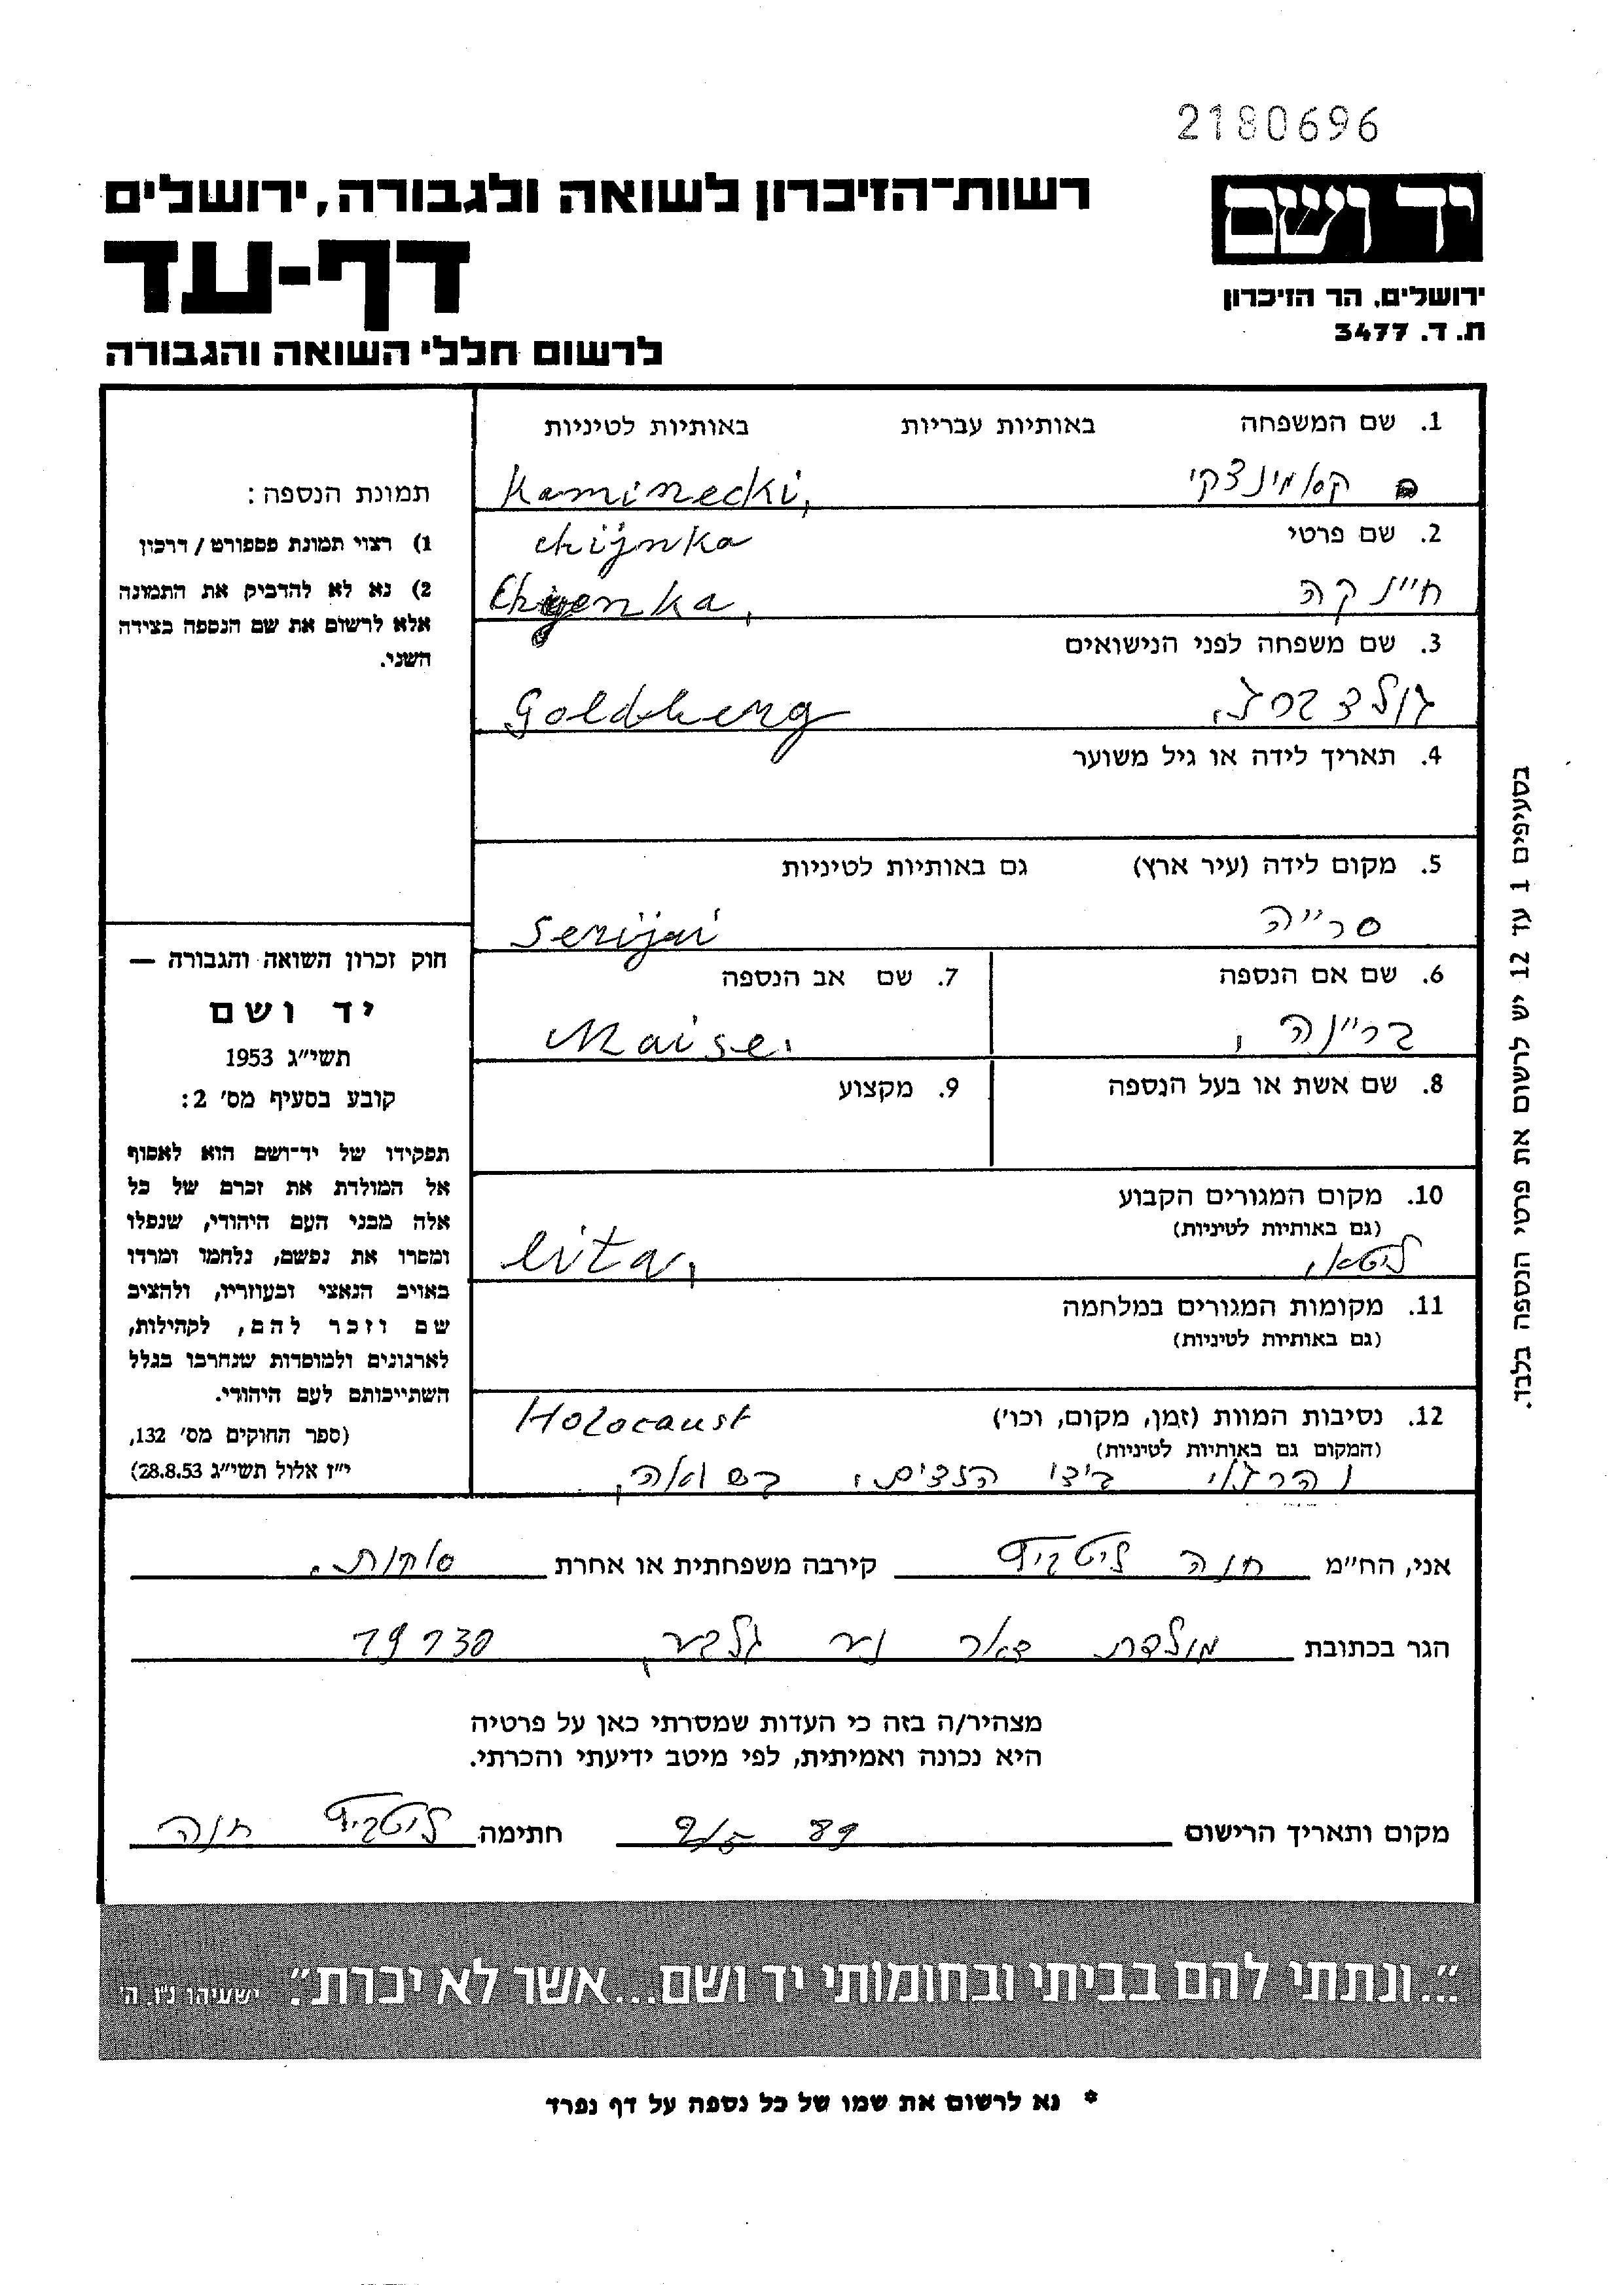 2180696
יד ושם
ירושלים, הר הזיכרון
ת. ד. 3477
רשות־הזיכרון לשואה ולגבורה, ירושלים
דף-עד
לרשום חללי השואה והגבורה
1. שם המשפחה באותיות עבריות באותיות לטיניות
קאמינצקי Kaminecki,
2. שם פרטי chijnka
חיינקה Chyenka,
3. שם משפחה לפני הנישואים
גולדברג, Goldberg
4. תאריך לידה או גיל משוער
5. מקום לידה (עיר ארץ) גם באותיות לטיניות
סרייה Serijai
6. שם אם הנספה 7. שם אב הנספה
בריינה, Maise,
8. שם אשת או בעל הנספה 9. מקצוע
10. מקום המגורים הקבוע
(גם באותיות לטיניות)
ליטא, Lita,
11. מקומות המגורים במלחמה
(גם באותיות לטיניות)
12. נסיבות המוות (זמן, מקום, וכו') Holocaust
(המקום גם באותיות לטיניות)
בידי הנצים, בשואה,
תמונת הנספה:
1) רצוי תמונת פספורט/דרכון
2) נא לא להדביק את התמונה
אלא לרשום את שם הנספה בצידה
השני.
חוק זכרון השואה והגבורה —
יד ושם
תשי"ג 1953
קובע בסעיף מס' 2:
תפקידו של יד־ושם הוא לאסוף
אל המולדת את זכרם של כל
אלה מבני העם היהודי, שנפלו
ומסרו את נפשם, נלחמו ומרדו
באויב הנאצי ובעוזריו, ולהציב
שם וזכר להם, לקהילות,
לארגונים ולמוסדות שנחרבו בגלל
השתייכותם לעם היהודי.
(ספר החוקים מס' 132,
י"ז אלול תשי"ג 28.8.53)
בסעיפים 1 עד 12 יש לרשום את פרטי הנספה בלבד.
אני, הח"מ חנה קירבה משפחתית או אחרת
הגר בכתובת מולדת דאר נע גלבע, 19130
מצהיר/ה בזה כי העדות שמסרתי כאן על פרטיה
היא נכונה ואמיתית, לפי מיטב ידיעתי והכרתי.
מקום ותאריך הרישום 9/5 89 חתימה חנה
"...ונתתי להם בביתי ובחומותי יד ושם...אשר לא יכרת". ישעיהו נ"ו, ה'
* נא לרשום את שמו של כל נספה על דף נפרד